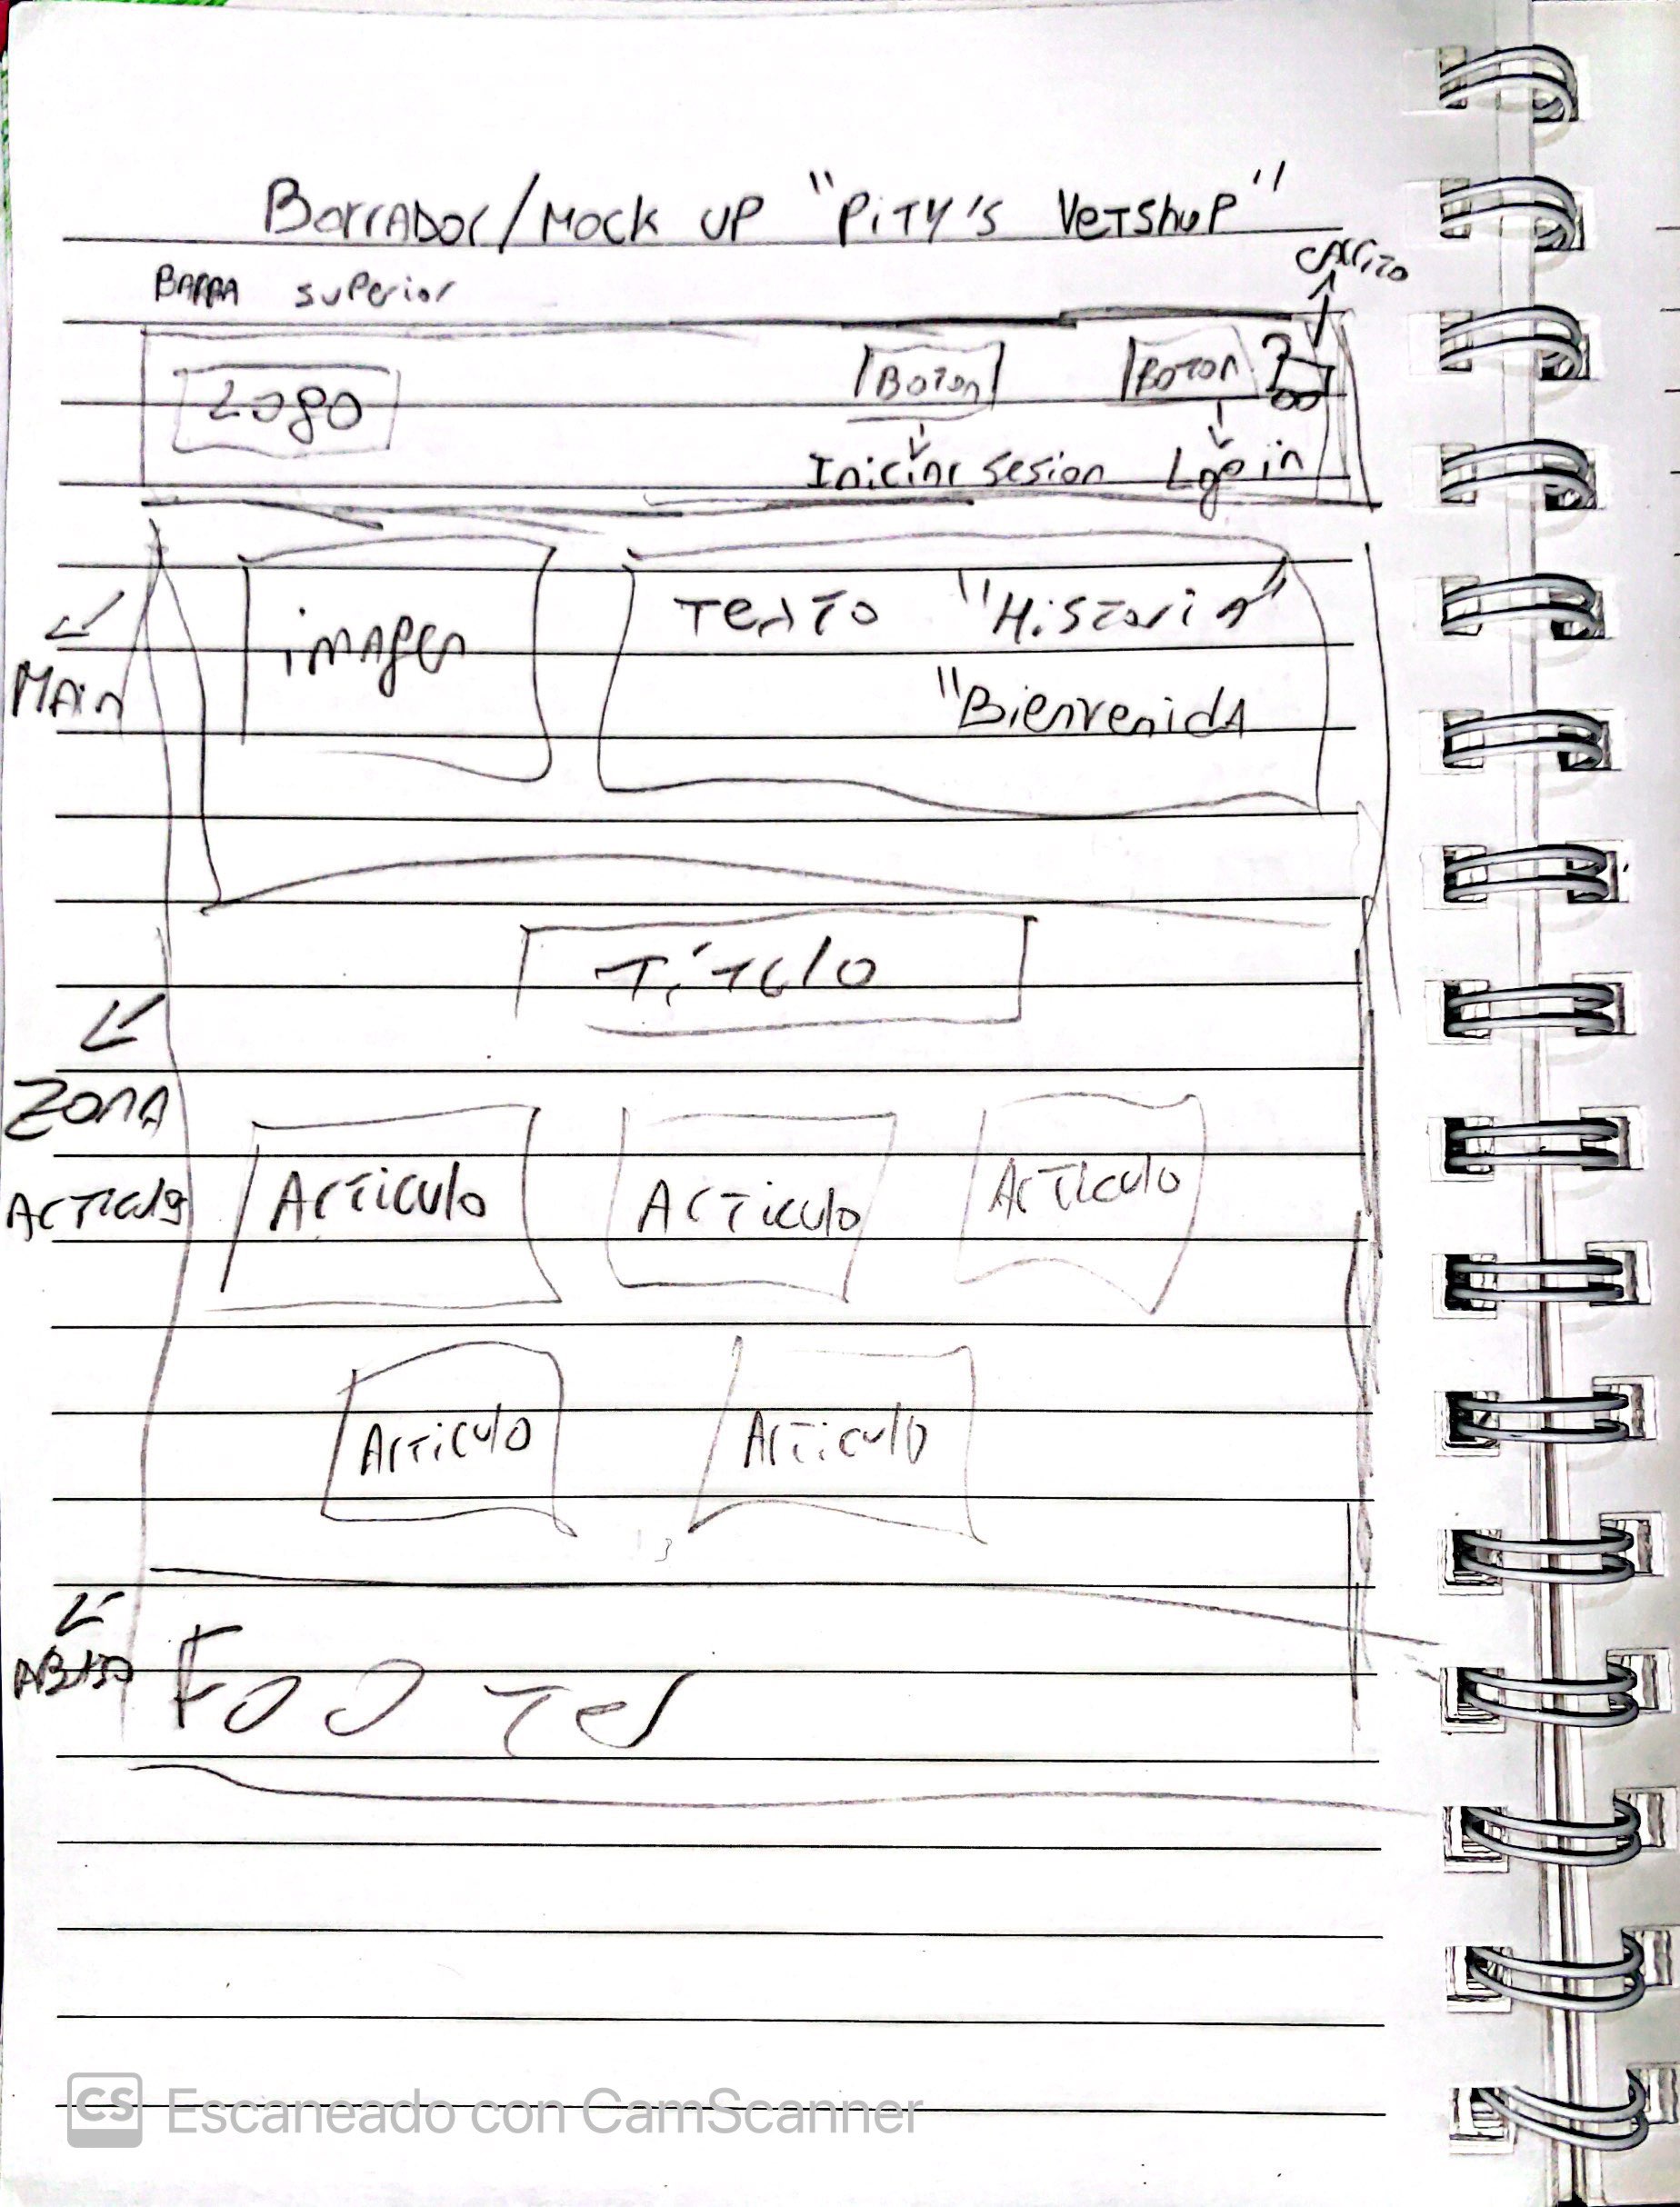 Borrador/Mock up "Pity's Vetshop"
Carrito
Barra superior
Logo
Boton
Boton
Iniciar sesion
Lgoin
Main
imagen
Texto "Historia"
"Bienvenida
Título
Zona
Articulo
Articulo
Articulo
Articulo
Articulo
Footer
CS Escaneado con CamScanner